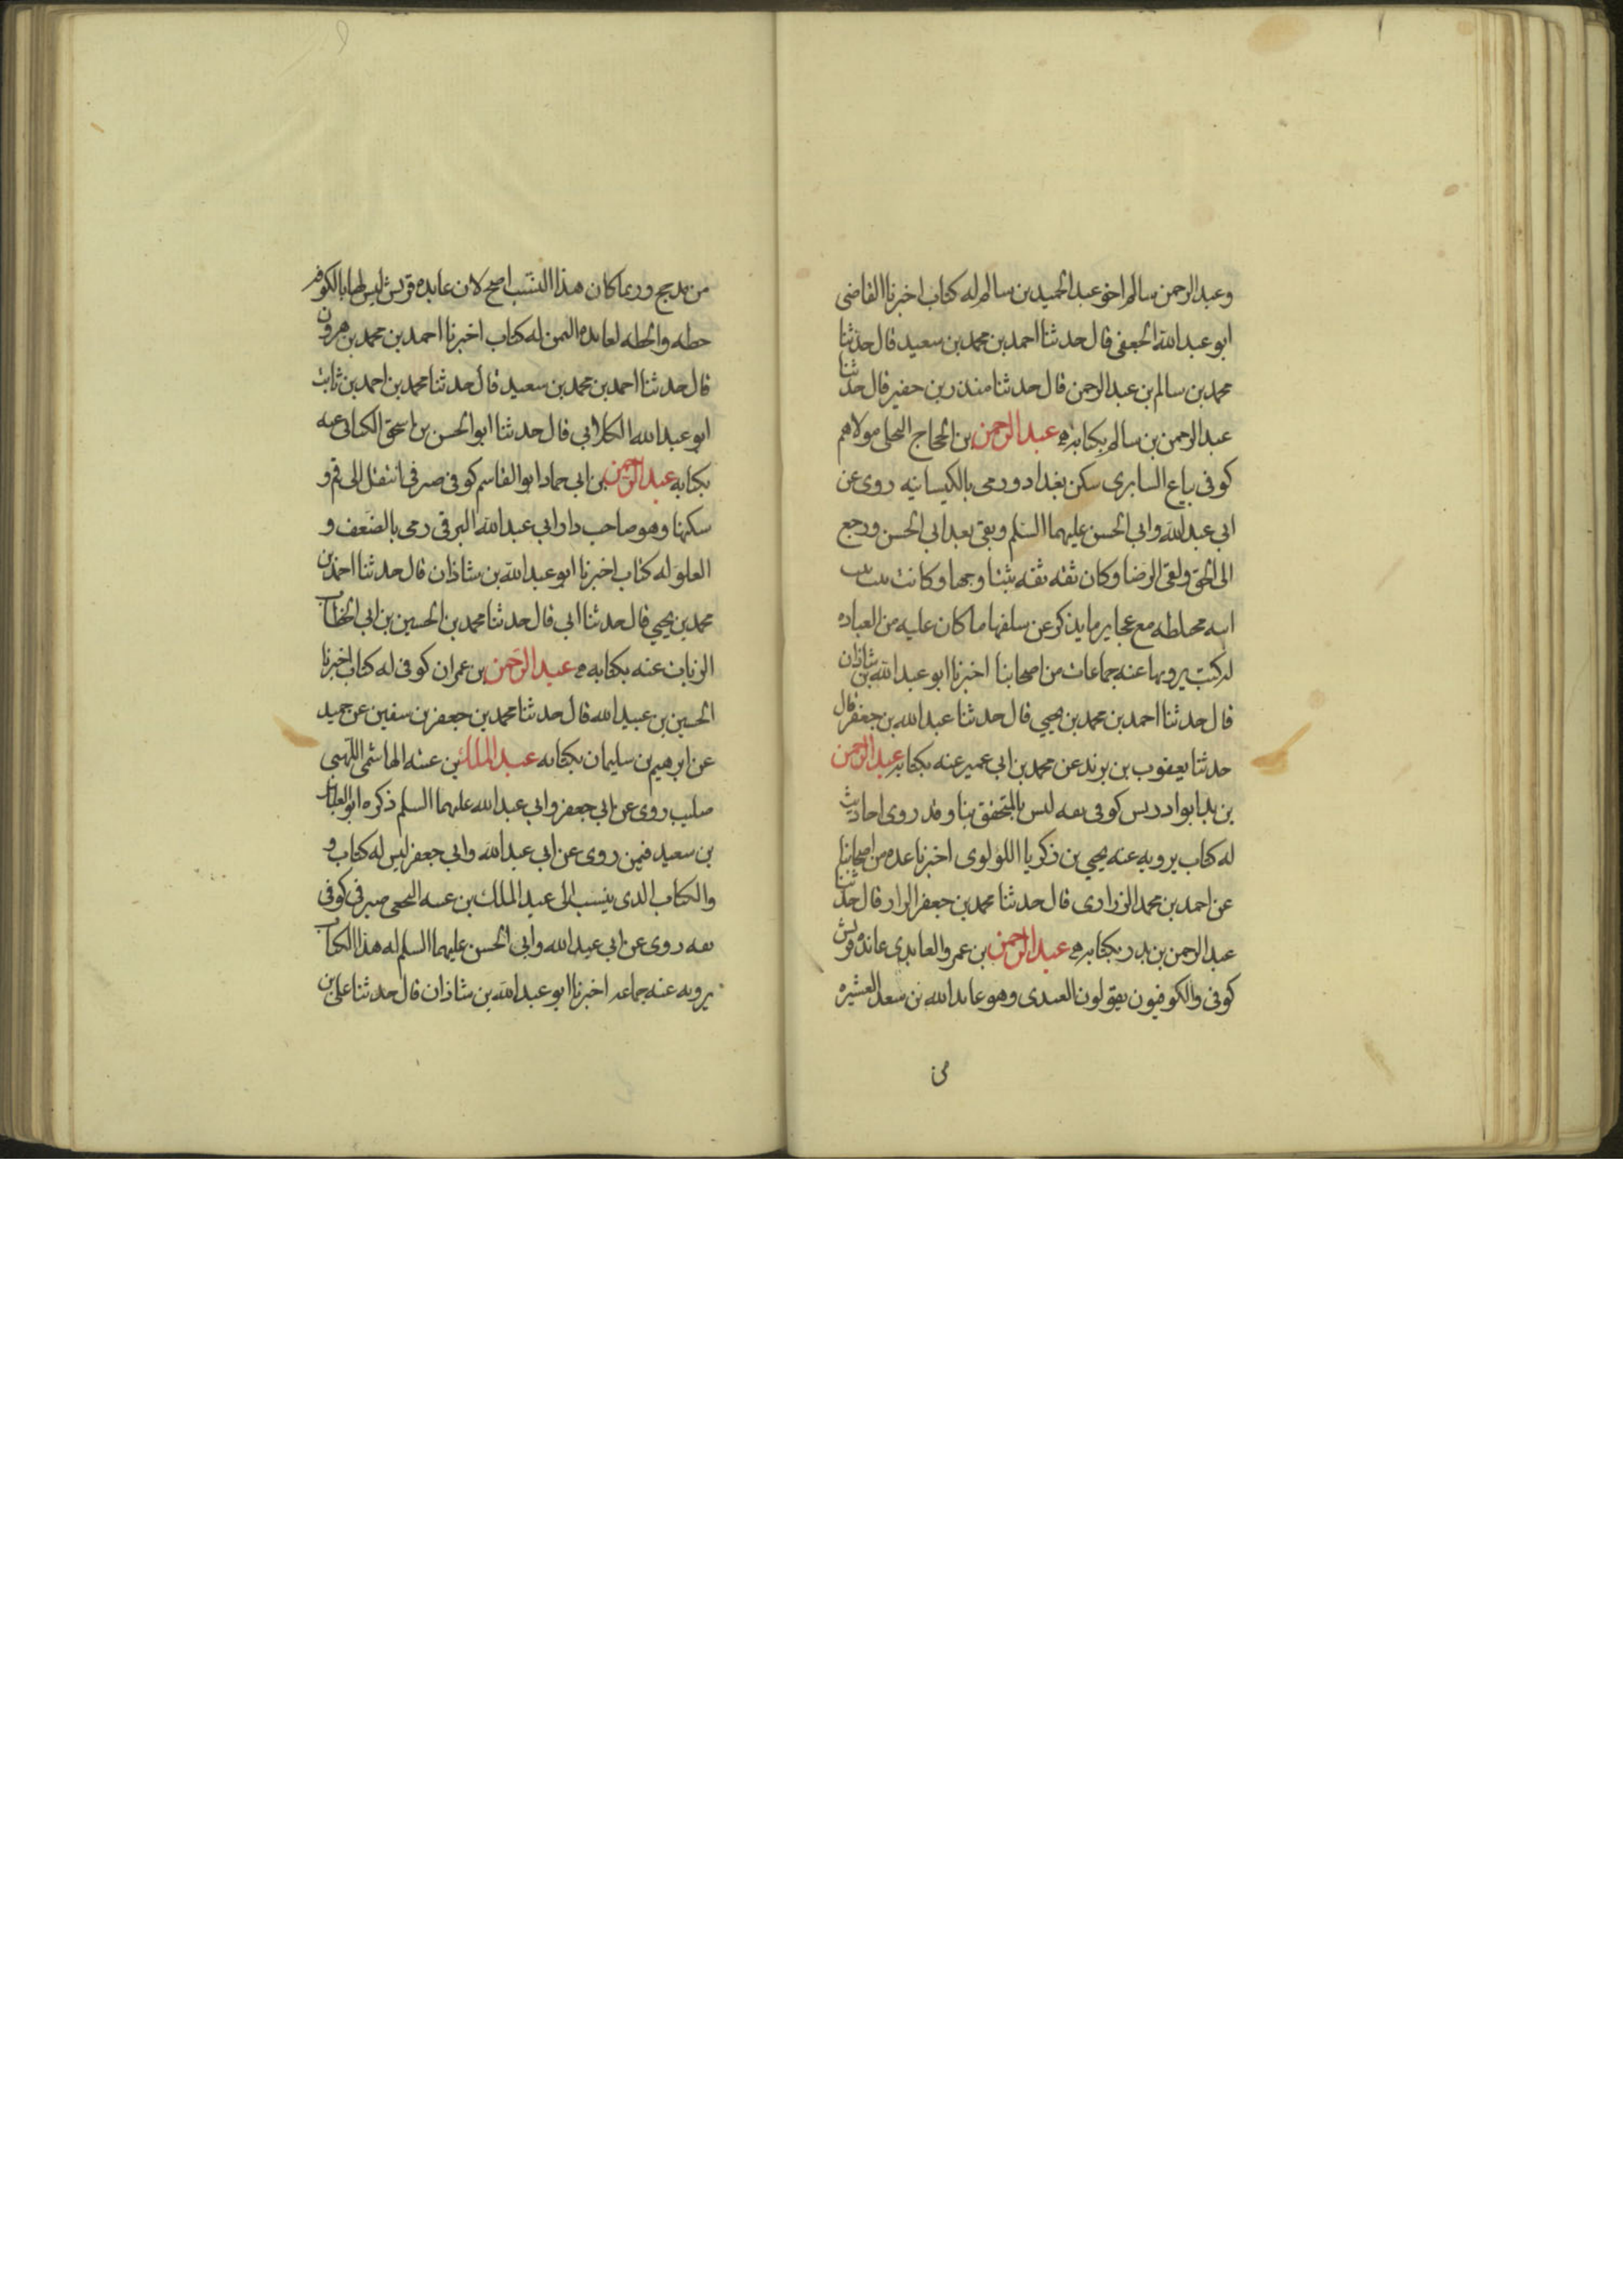 وعبد الرحمن سالم اخو عبد الحميد بن سالم له كتاب اخبرنا القاضى
ابو عبد الله الجعفى قال حدثنا احمد بن محمد بن سعيد قال حدثنا
محمد بن سالم بن عبد الرحمن قال حدثنا منذر بن حفير قال حدثنا
عبد الرحمن بن سالم بكتابه عبد الرحمن بن الحجاج البجلى مولاهم
كوفى بياع السابرى سكن بغداد ورمى بالكيسانيه روى عن
ابى عبد الله وابى الحسن عليهما السلم وبقى بعد ابى الحسن ورجع
الى الحق ولقى الرضا وكان ثقه ثقه ثبتا وجها وكانت بنت
ابنه مختلطه مع عجايزنا يذكر عن سلفها ما كان عليه من العباده
له كتب يرويها عنه جماعات من اصحابنا اخبرنا ابو عبد الله بن شاذان
قال حدثنا احمد بن محمد بن يحيى قال حدثنا عبد الله بن جعفر قال
حدثنا يعقوب بن يزيد عن محمد بن ابى عمير عنه بكتابه عبد الرحمن
بن بدر ابو ادريس كوفى ثقه ليس بالمتحقق بنا وقد روى احاديث
له كتاب يرويه عنه يحيى بن زكريا اللؤلوى اخبرنا عده من اصحابنا
عن احمد بن محمد الزرارى قال حدثنا محمد بن جعفر الرزاز قال حدثنا
عبد الرحمن بن بدر بكتابه عبد الرحمن بن عمرو العايدى عائده قريش
كوفى والكوفيون يقولون العيدى وهو عايد الله بن سعد العشيره
من
من مذحج وربما كان هذا النسب اصح لان عايده قريش ليس لها بالكوفه
خطه والخطه لعايده اليمن له كتاب اخبرنا احمد بن محمد بن هرون
قال حدثنا احمد بن محمد بن سعيد قال حدثنا محمد بن احمد بن ثابت
ابو عبد الله الكلابى قال حدثنا ابو الحسن بن اسحق الكنانى عنه
بكتابه عبد الرحمن بن ابى حماد ابو القاسم كوفى صرفى انتقل الى قم و
سكنها وهو صاحب دار ابى عبد الله البرقى رمى بالضعف و
الغلو له كتاب اخبرنا ابو عبد الله بن شاذان قال حدثنا احمد بن
محمد بن يحيى قال حدثنا ابى قال حدثنا محمد بن الحسين بن ابى الخطاب
الزيات عنه بكتابه عبد الرحمن بن عمران كوفى له كتاب اخبرنا
الحسين بن عبيد الله قال حدثنا محمد بن جعفر بن سفين عن حميد
عن ابرهيم بن سليمان بكتابه عبد الملك بن عتبه الهاشمى اللهبى
صليب روى عن ابى جعفر وابى عبد الله عليهما السلم ذكره ابو العباس
بن سعيد فيمن روى عن ابى عبد الله وابى جعفر ليس له كتاب و
والكتاب الذى ينسب الى عبد الملك بن عتبه النخعى صيرفى كوفى
ثقه روى عن ابى عبد الله وابى الحسن عليهما السلم له هذا الكتاب
يرويه عنه جماعه اخبرنا ابو عبد الله بن شاذان قال حدثنا على بن